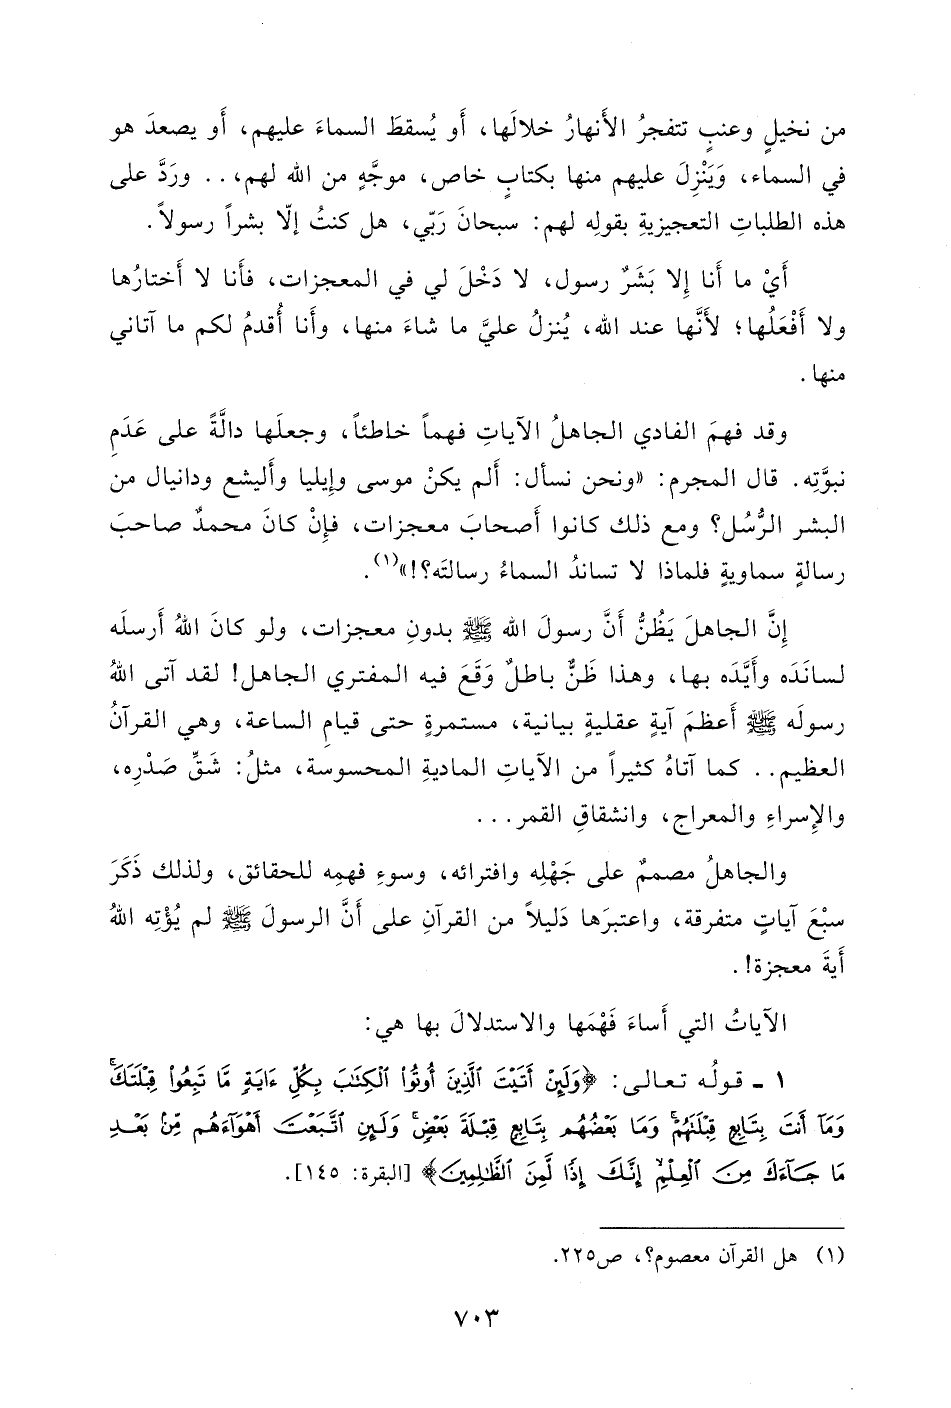 من نخيلٍ وعنبٍ تتفجرُ الأنهارُ خلالَها، أَو يُسقطَ السماءَ عليهم، أَو يصعدَ هو
في السماء، وَيَنْزِلَ عليهم منها بكتابٍ خاص، موجَّهٍ من الله لهم،.. ورَدَّ على
هذه الطلباتِ التعجيزيةِ بقولِه لهم: سبحانَ رَبّي، هل كنتُ إلّا بشراً رسولاً.
أَيْ ما أَنا إِلا بَشَرٌ رسول، لا دَخْلَ لي في المعجزات، فأَنا لا أَختارُها
ولا أَفْعَلُها؛ لأَنَّها عند الله، يُنزلُ عليَّ ما شاءَ منها، وأَنا أُقدمُ لكم ما آتاني
منها.
وقد فهمَ الفادي الجاهلُ الآياتِ فهماً خاطئاً، وجعلَها دالَّةً على عَدَمِ
نبوَّتِه. قال المجرم: «ونحن نسأل: أَلم يكنْ موسى وإِيليا وأَليشع ودانيال من
البشر الرُّسُل؟ ومع ذلك كانوا أَصحابَ معجزات، فإِنْ كانَ محمدٌ صاحبَ
رسالةٍ سماويةٍ فلماذا لا تساندُ السماءُ رسالتَه؟!»(١).
إِنَّ الجاهلَ يَظُنُّ أَنَّ رسولَ الله ﷺ بدونِ معجزات، ولو كانَ اللهُ أَرسله
لسانَدَه وأَيَّدَه بها، وهذا ظَنٌّ باطلٌ وَقَعَ فيه المفتري الجاهل! لقد آتى اللهُ
رسولَه ﷺ أَعظمَ آيةٍ عقليةٍ بيانية، مستمرةٍ حتى قيامِ الساعة، وهي القرآنُ
العظيم.. كما آتاهُ كثيراً من الآياتِ الماديةِ المحسوسة، مثلُ: شَقِّ صَدْرِه،
والإِسراءِ والمعراج، وانشقاقِ القمر...
والجاهلُ مصممٌ على جَهْلِه وافترائه، وسوءِ فهمِه للحقائق، ولذلك ذَكَرَ
سبْعَ آياتٍ متفرقة، واعتبرَها دَليلاً من القرآنِ على أَنَّ الرسولَ ﷺ لم يُؤْتِه اللهُ
أَيةَ معجزة!.
الآياتُ التي أَساءَ فَهْمَها والاستدلالَ بها هي:
١ - قولُه تعالى: ﴿وَلَئِنْ أَتَيْتَ ٱلَّذِينَ أُوتُوا۟ ٱلْكِتَٰبَ بِكُلِّ ءَايَةٍ مَّا تَبِعُوا۟ قِبْلَتَكَ ۚ
وَمَآ أَنتَ بِتَابِعٍ قِبْلَتَهُمْ ۚ وَمَا بَعْضُهُم بِتَابِعٍ قِبْلَةَ بَعْضٍ ۚ وَلَئِنِ ٱتَّبَعْتَ أَهْوَآءَهُم مِّنۢ بَعْدِ
مَا جَآءَكَ مِنَ ٱلْعِلْمِ ۙ إِنَّكَ إِذًا لَّمِنَ ٱلظَّٰلِمِينَ﴾ [البقرة: ١٤٥].
(١) هل القرآن معصوم؟، ص٢٢٥.
٧٠٣